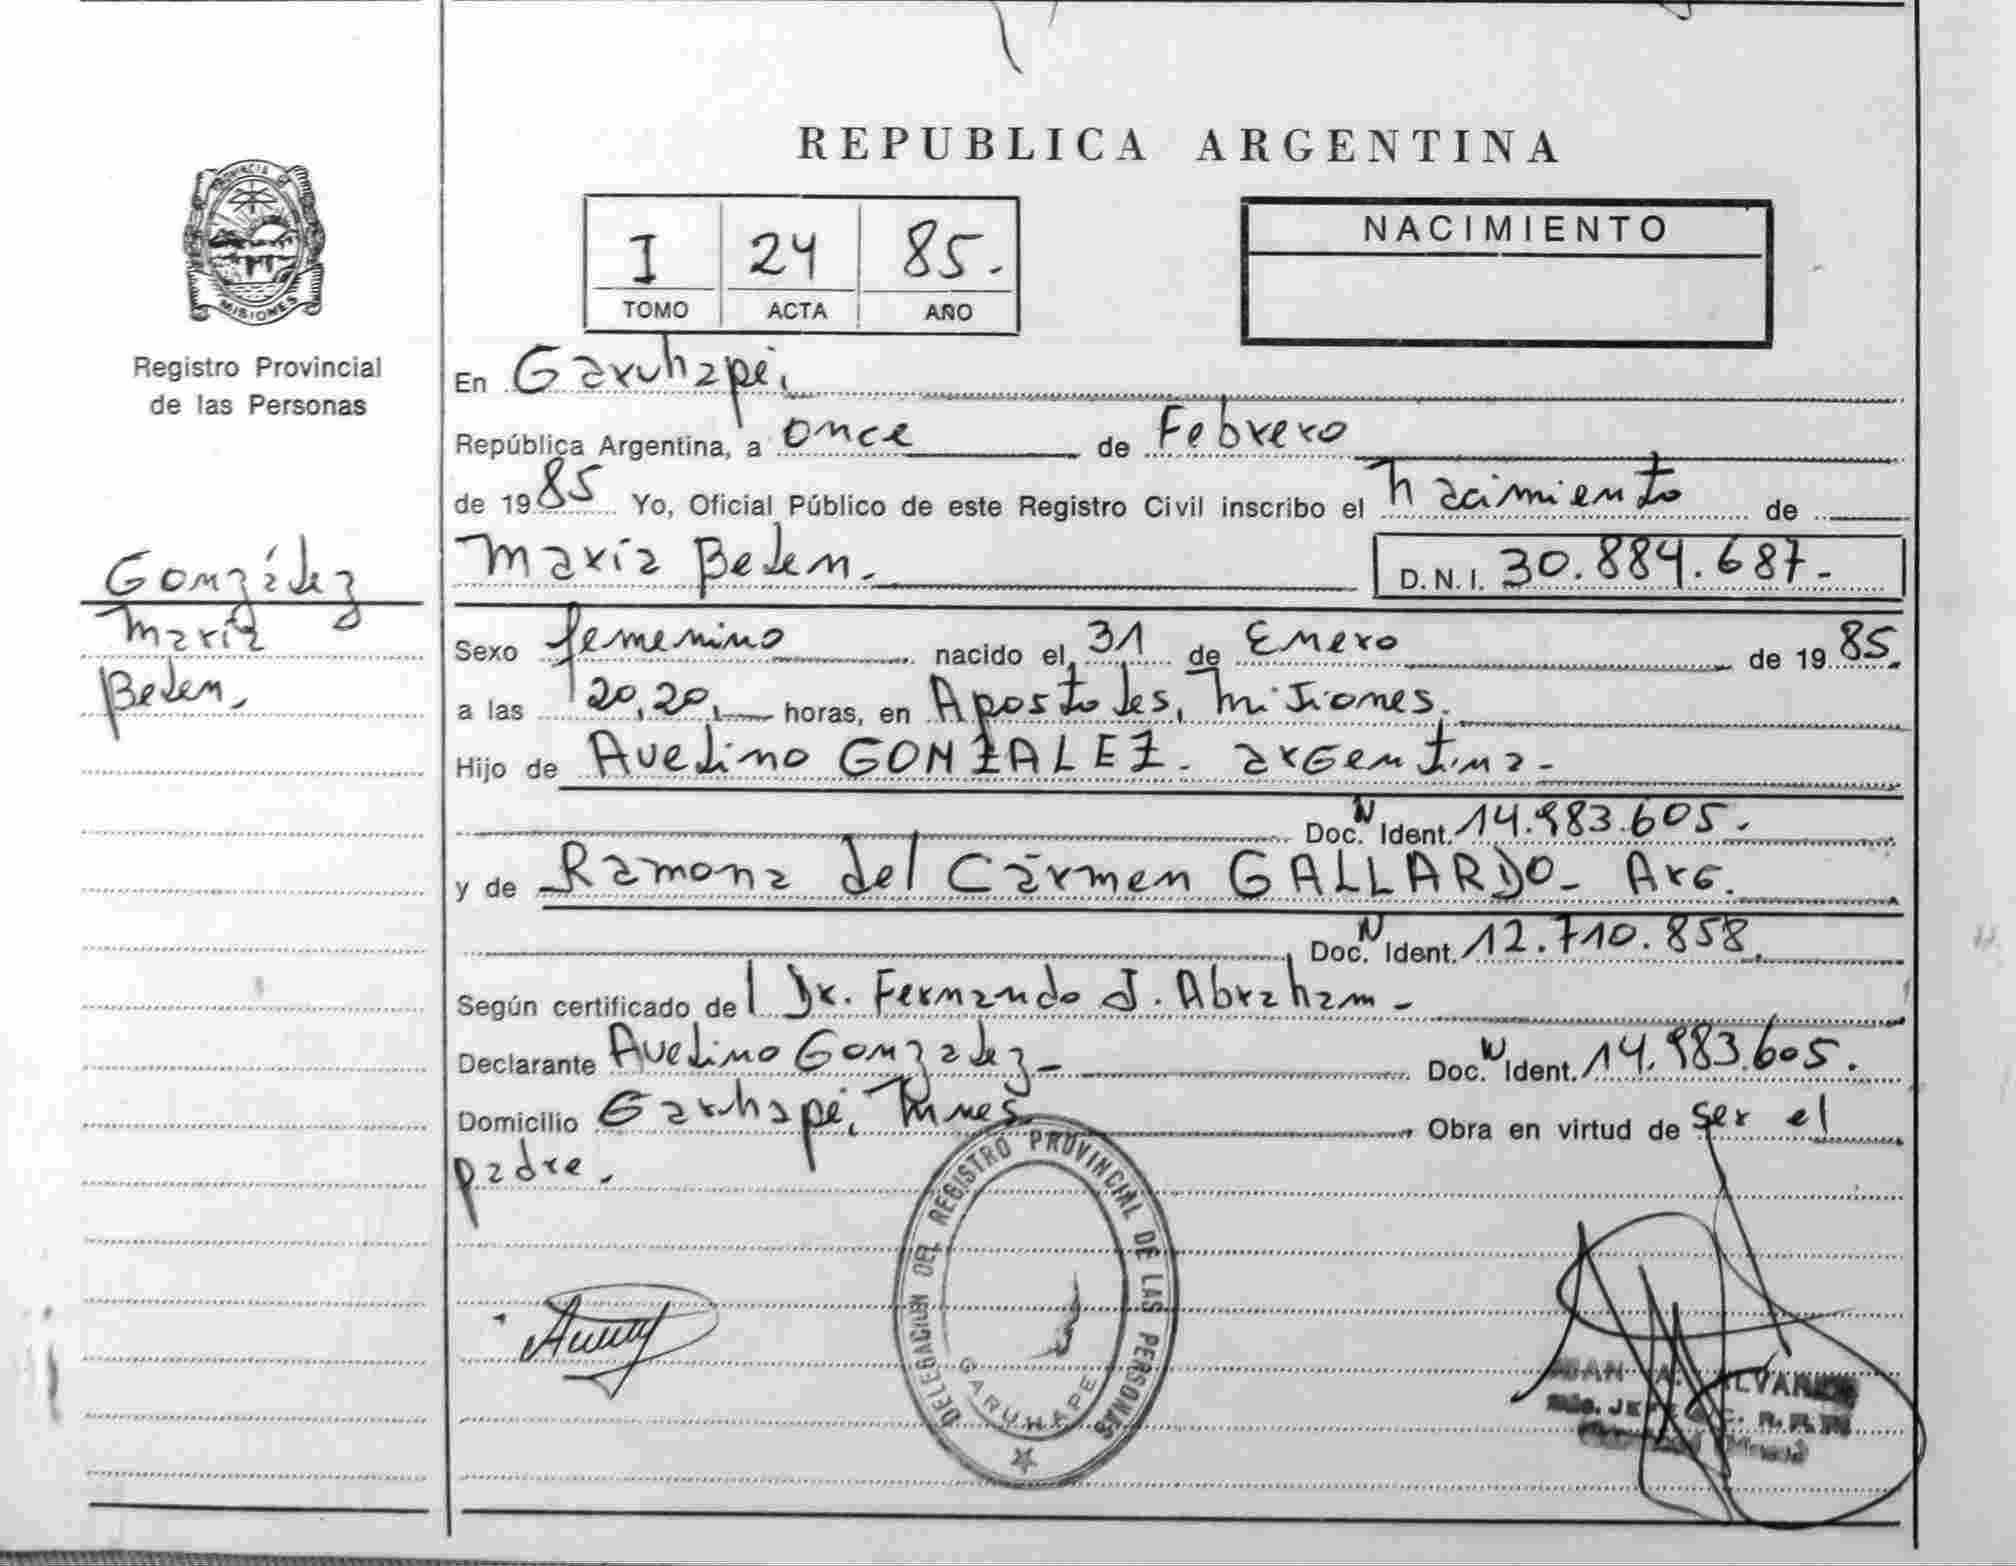 REPUBLICA ARGENTINA
PROVINCIA DE
MISIONES
Registro Provincial
de las Personas
I 24 85.
TOMO ACTA AÑO
NACIMIENTO
En Garuhapé,
República Argentina, a once de Febrero
de 1985 Yo, Oficial Público de este Registro Civil inscribo el nacimiento de
María Belen. D.N.I. 30.884.687.-
González
María
Belen.
Sexo femenino nacido el 31 de Enero de 1985.
a las 20,20, horas, en Apostoles, Misiones.
Hijo de Avelino GONZALEZ. argentina-
Doc. N Ident. 14.983.605.
y de Ramona del Cármen GALLARDO- Arg.
Doc. N Ident. 12.710.858.
Según certificado del Dr. Fernando J. Abraham-
Declarante Avelino Gonzalez- Doc. N Ident. 14.983.605.
Domicilio Garuhapé, Mnes Obra en virtud de ser el
padre.
DELEGACION DEL REGISTRO PROVINCIAL DE LAS PERSONAS
GARUHAPE